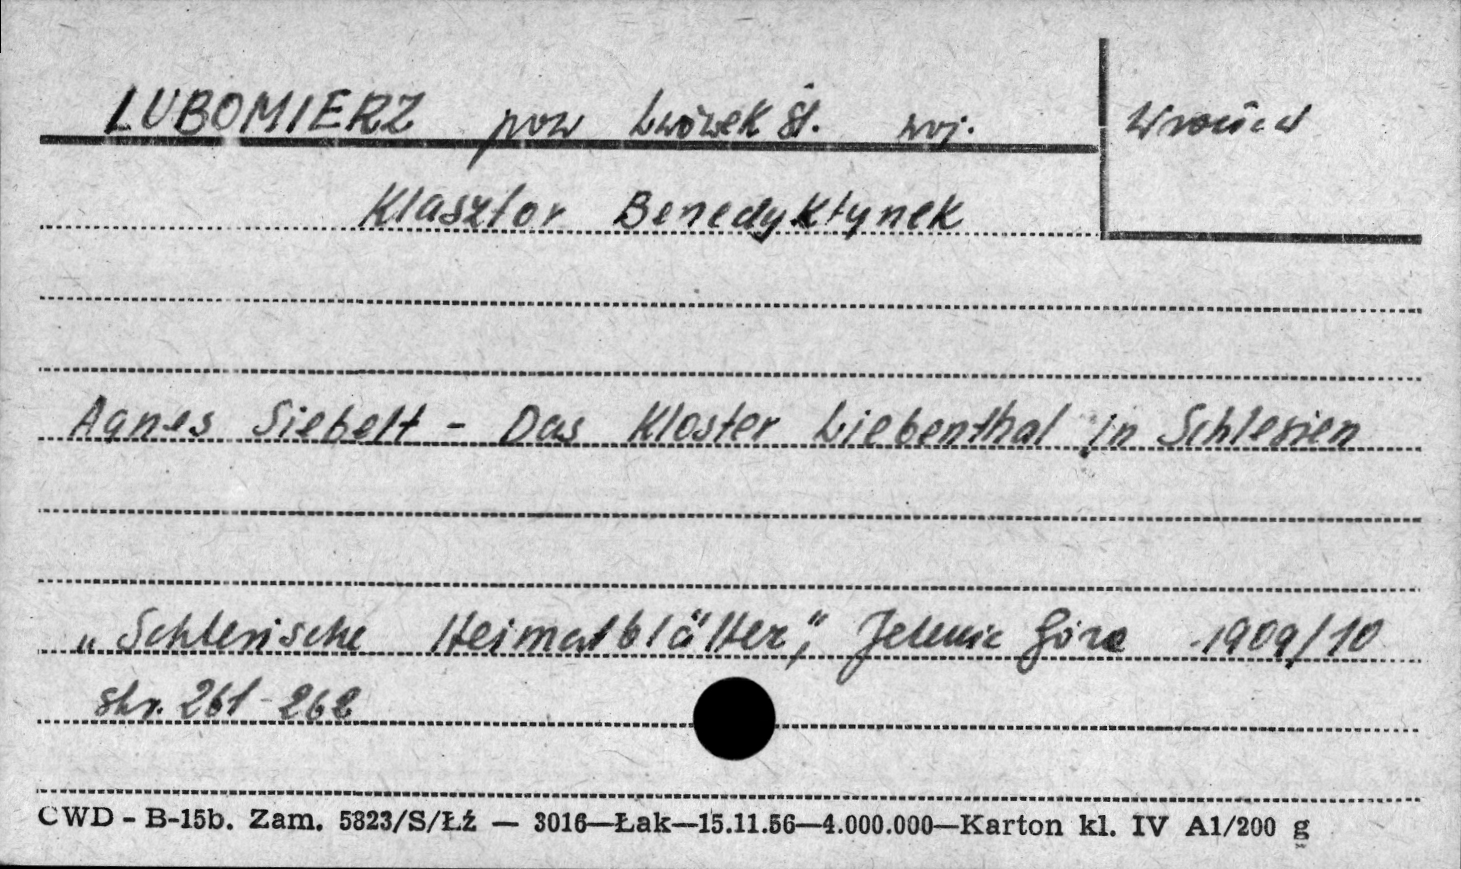 LUBOMIERZ pow Lwówek Śl. woj. Wrocław
Klasztor Benedyktynek
Agnes Siebelt - Das Kloster Liebenthal in Schlesien
„Schlesische Heimatblätter," Jelenia Góra 1909/10
str. 261-262
CWD - B-15b. Zam. 5823/S/Łź — 3016—Łak—15.11.56—4.000.000—Karton kl. IV A1/200 g